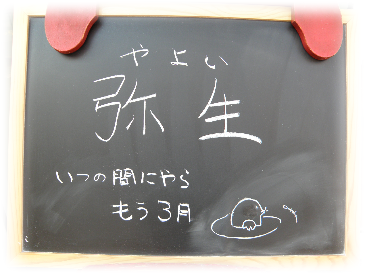 やよい
弥生
いつの間にやら
もう3月